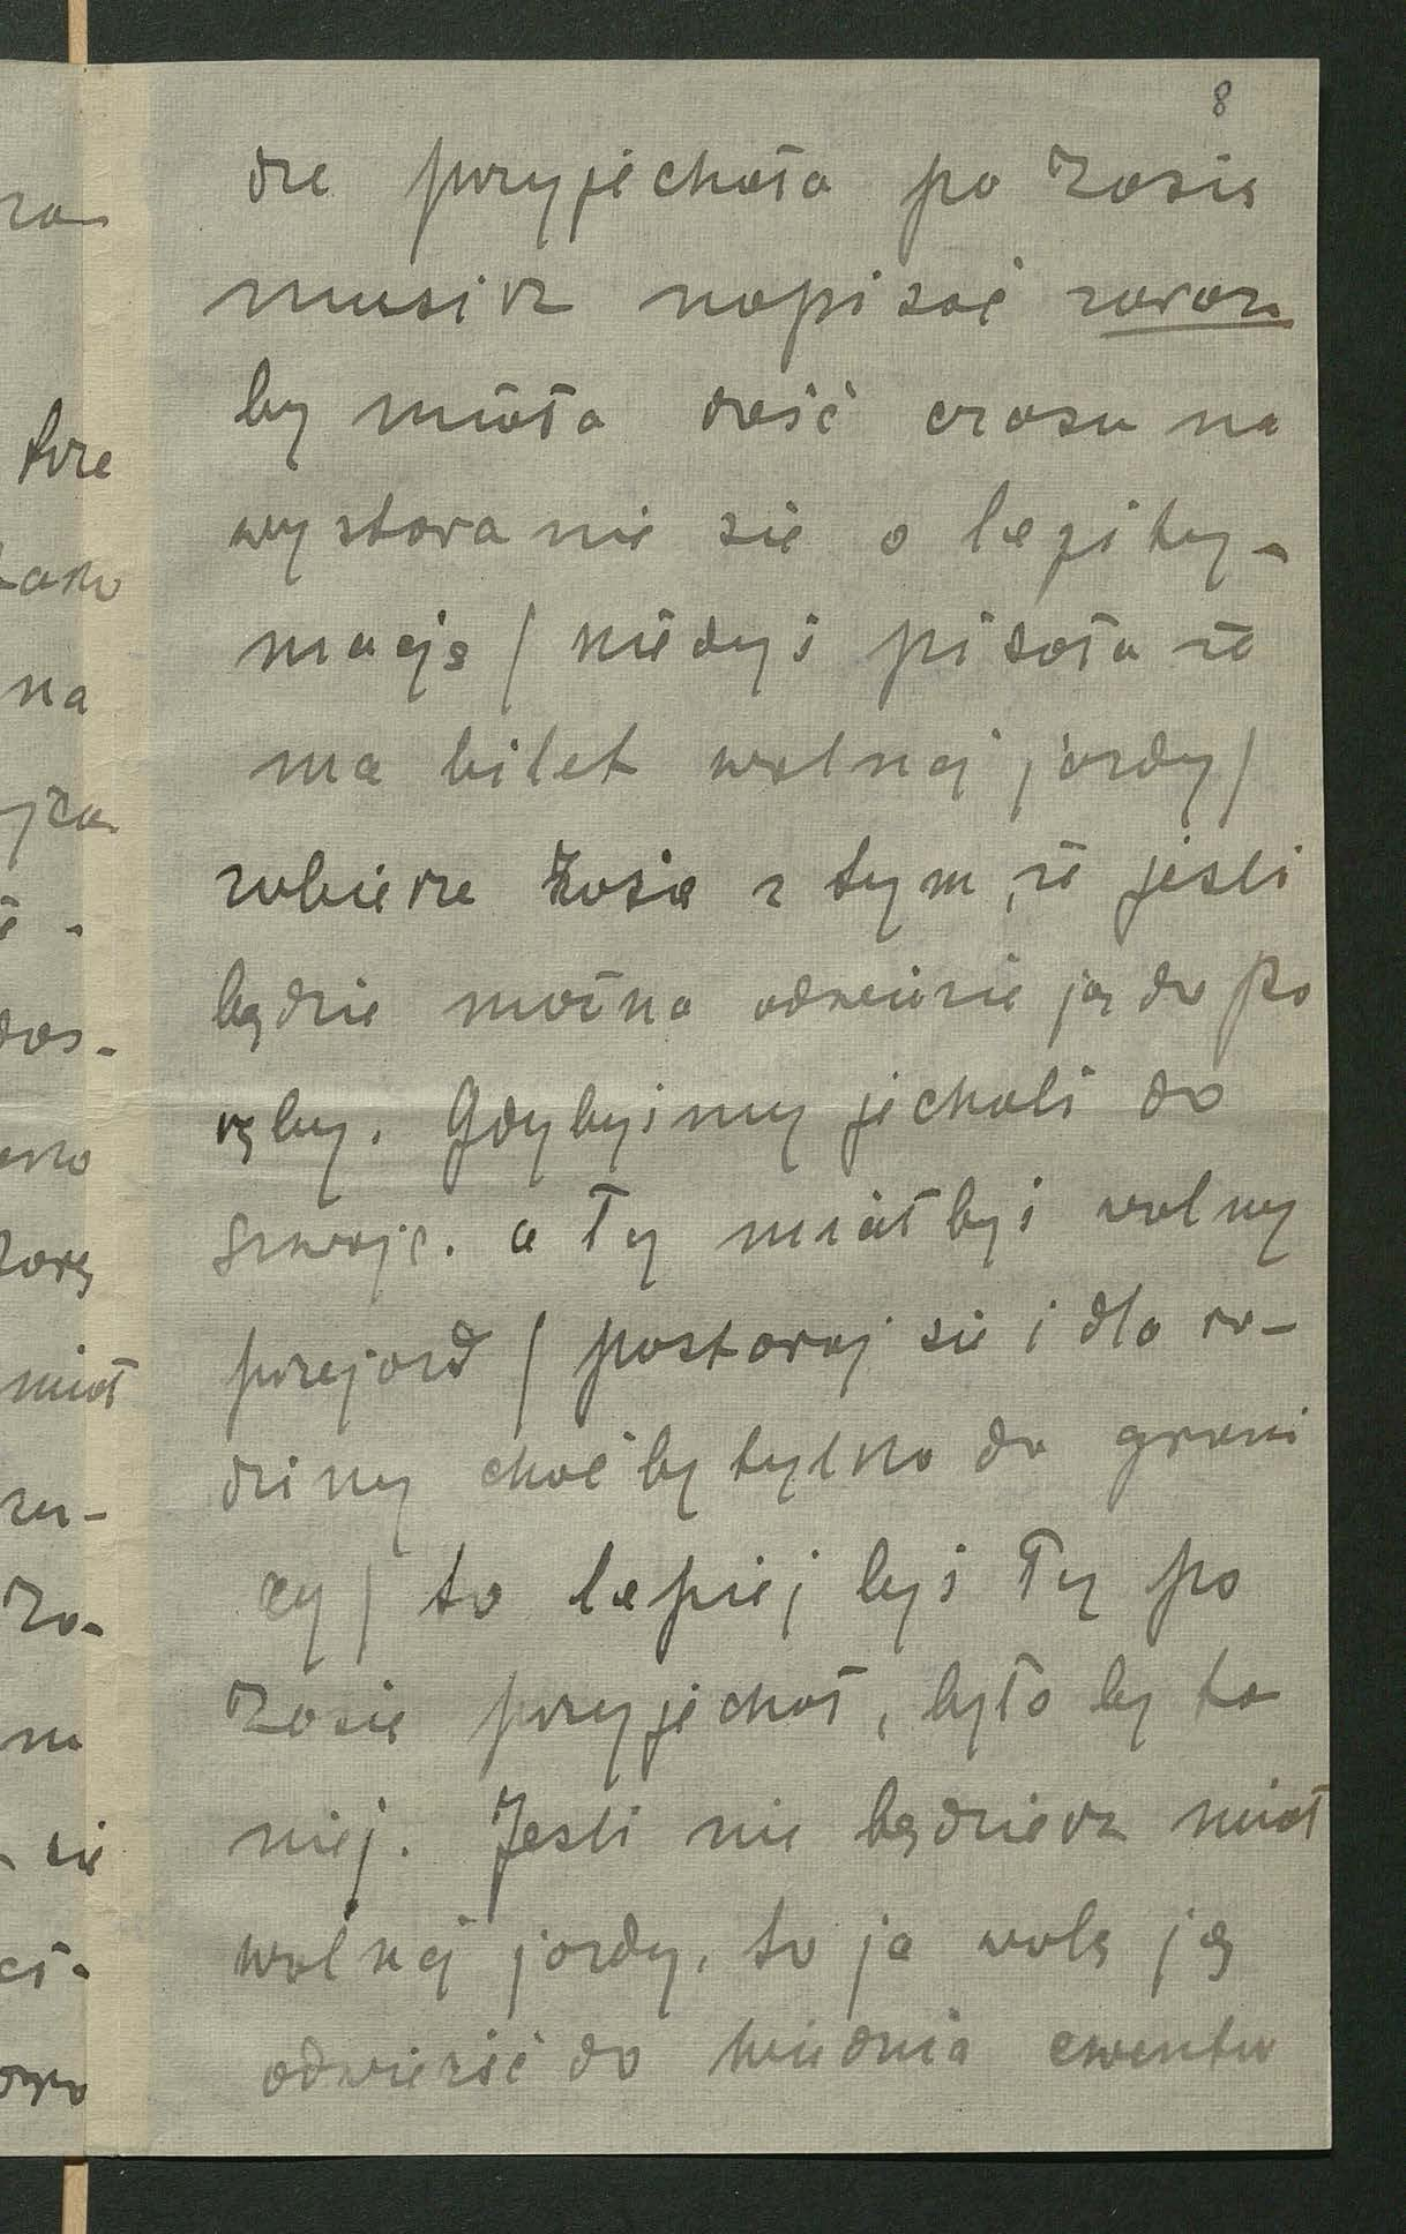 8
dze przyjechała po Zosię
musisz napisać zaraz
by miała dość czasu na
wystaranie się o legity-
mację / kiedyś pisała że
ma bilet wolnej jazdy /
zabierze Zosię z tym, że jeśli
będzie można odwiezie ją do Po
ręby. Gdybyśmy jechali do
Szwajc. a Ty miałbyś wolny
przejazd / postaraj się i dla ro-
dziny choćby tylko do grani
cy / to lepiej byś Ty po
Zosię przyjechał, było by ta
niej. Jeśli nie będziesz miał
wolnej jazdy, to ja wolę ją
odwieźć do Wiednia ewentu